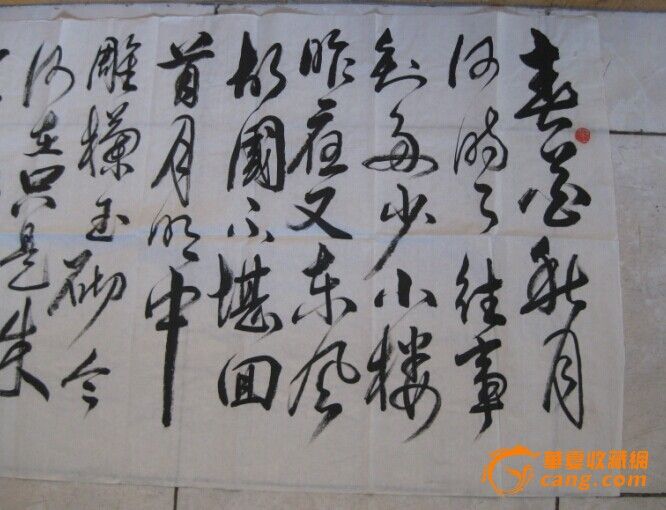 春花秋月
何時了往事
知多少小樓
昨夜又東風
故國不堪回
首月明中
雕欄玉砌今
何在只是朱
華夏收藏網
cang.com